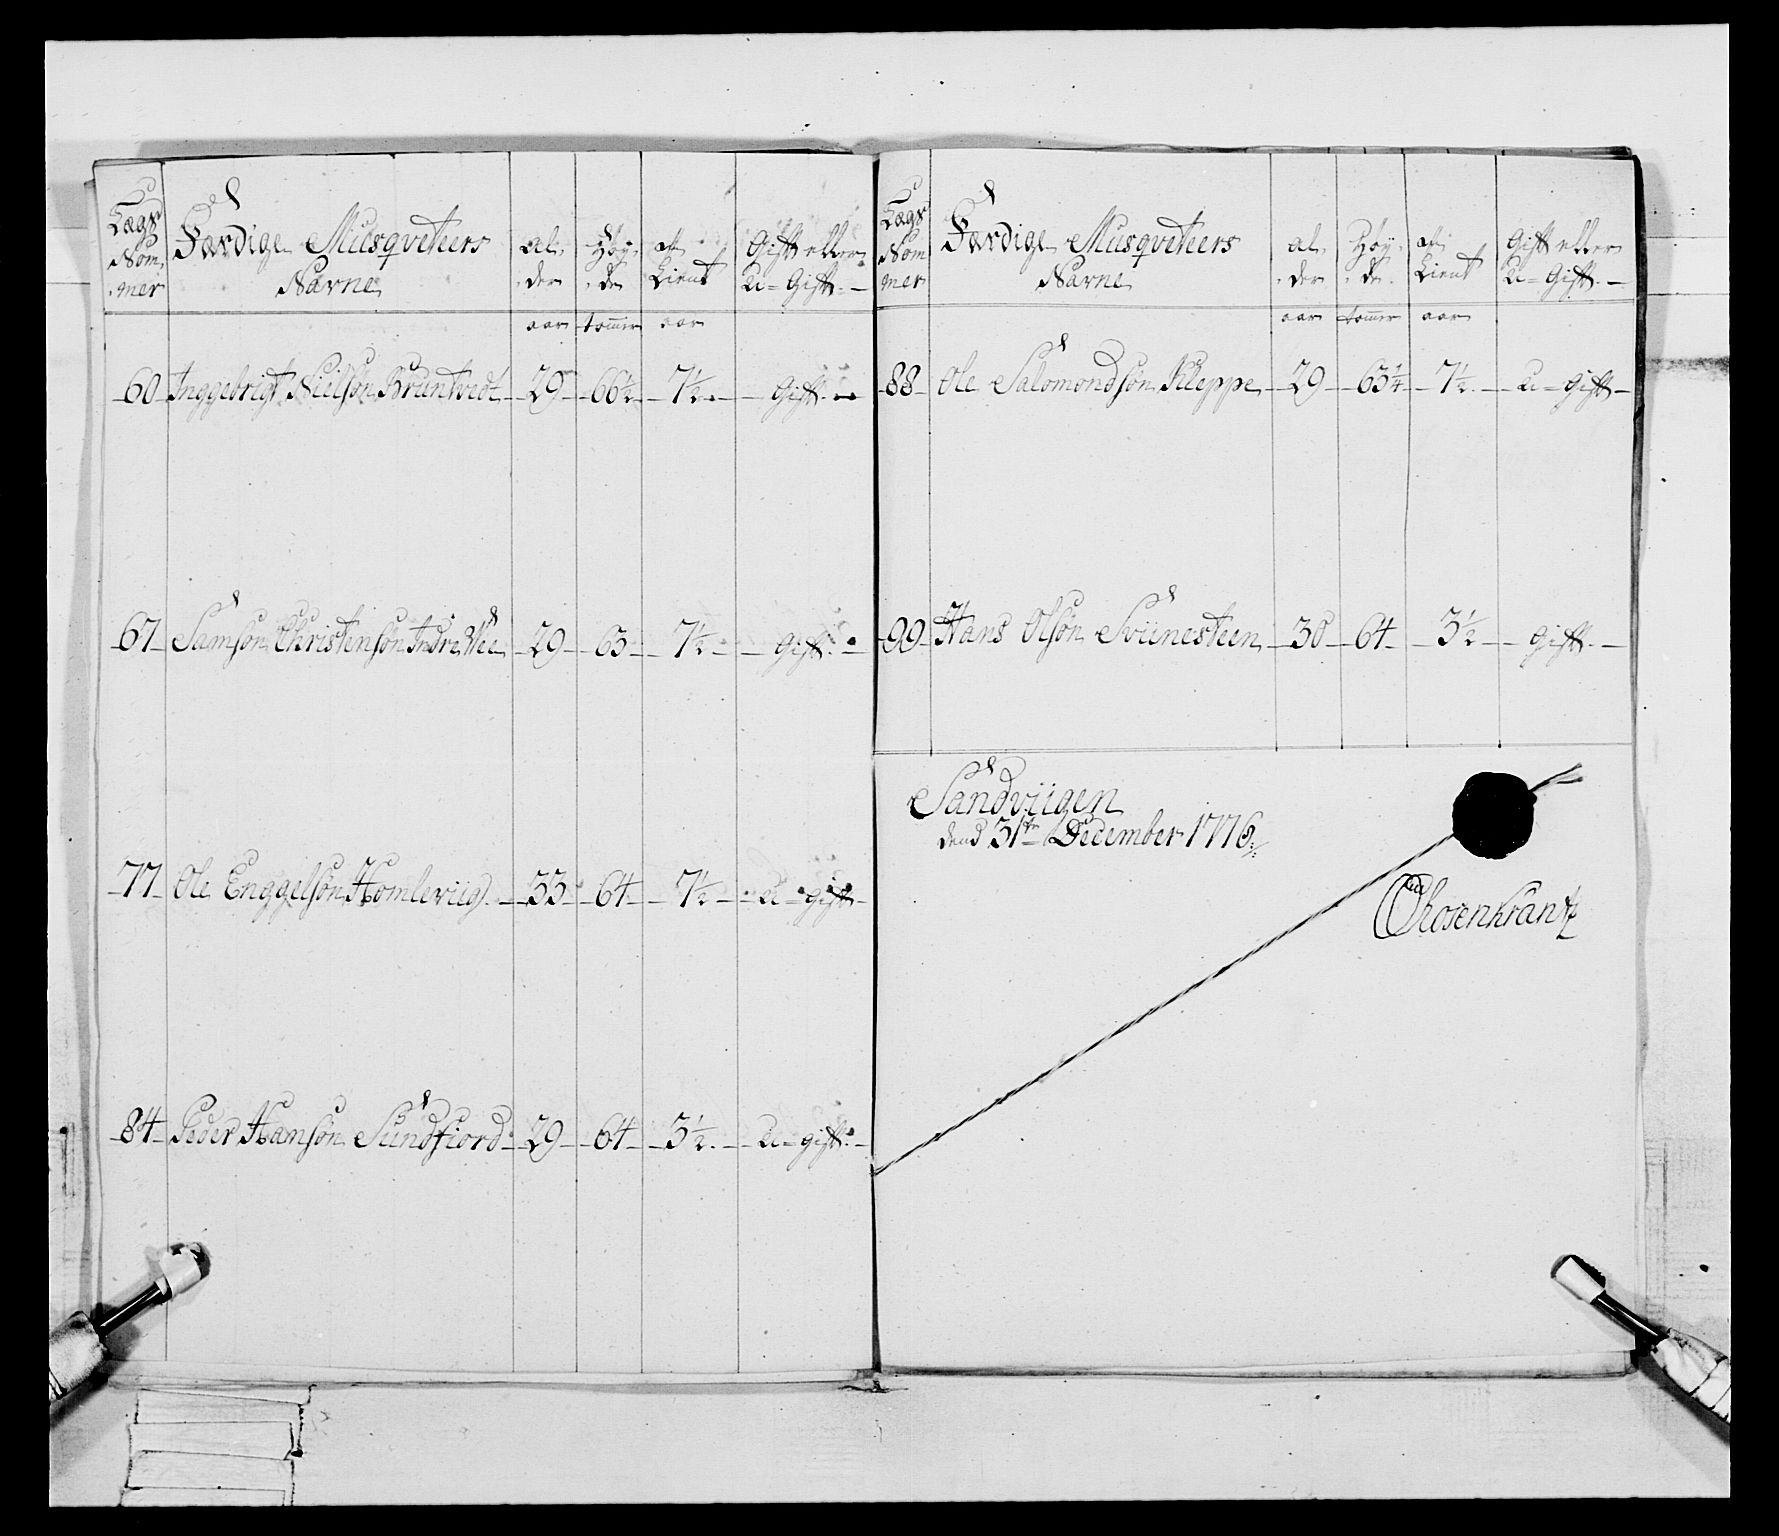 Lægs Nom, mer
Færdige Musqveteers Navne
al, der
Høy, de
af, tient
Gift eller U-Gift
aar tomer aar
60 Inggebrigt Nielsøn Bruntvedt 29 66½ 7½ Gift
67 Samson Christensøn Indre Wee 29 63 7½ Gift
77 Ole Enggelsøn Homleviig 33 64 7½ U-gift
84 Peder Hansøn Sundfiord 29 64 3½ U-gift
Lægs Nom mer
Færdige Musqveteers Navne
al, der
Høy, de
af, tient
Gift eller U-Gift
aar tomer aar
88 Ole Salomondsøn Kleppe 29 63¼ 7½ U-gift
99 Hans Olsøn Sviinesteen 38 64 3½ Gift
Sandviigen
dend 31te December 1776
Rosenkrantz